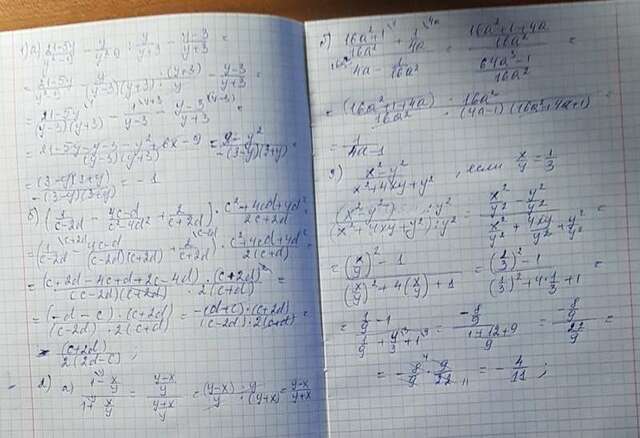 1) а) (21-5y)/(y²-9) - y/(y²-9) : y/(y+3) - (y-3)/(y+3) =
= (21-5y)/(y²-9) - y/((y-3)(y+3)) · (y+3)/y - (y-3)/(y+3) =
= (21-5y)/((y-3)(y+3)) - 1/(y-3) - (y-3)/(y+3) =
= (21-5y-y-3-y²+6x-9)/((y-3)(y+3)) = (9-y²)/(-(3-y)(3+y)) =
= ((3-y)(3+y))/(-(3-y)(3+y)) = -1
б) (1/(c-2d) - (4c-d)/(c²-4d²) + 2/(c+2d)) · (c²+4cd+4d²)/(2c+2d) =
= (1/(c-2d) - (4c-d)/((c-2d)(c+2d)) + 2/(c+2d)) · (c²+4cd+4d²)/(2(c+d)) =
= (c+2d-4c+d+2c-4d)/((c-2d)(c+2d)) · (c+2d)²/(2(c+d)) =
= ((-d-c)·(c+2d))/((c-2d)·2(c+d)) = (-(d+c)·(c+2d))/((c-2d)·2(c+d)) =
= (c+2d)/(2(2d-c));
2) а) (1-x/y)/(1+x/y) = ((y-x)/y)/((y+x)/y) = ((y-x)·y)/(y·(y+x)) = (y-x)/(y+x)
б) ((16a²+1)/(16a²) + 1/(4a))/(4a - 1/(16a²)) = ((16a²+1+4a)/(16a²))/((64a³-1)/(16a²)) =
= ((16a²+1+4a)·16a²)/(16a²·(4a-1)(16a²+4a+1)) =
= 1/(4a-1)
(x²-y²)/(x²+4xy+y²), если x/y = 1/3
((x²-y²):y²)/((x²+4xy+y²):y²) = (x²/y² - y²/y²)/(x²/y² + 4xy/y² + y²/y²) =
= ((x/y)²-1)/((x/y)²+4(x/y)+1) = ((1/3)²-1)/((1/3)²+4·1/3+1) =
= (1/9-1)/(1/9+4/3+1) = (-8/9)/((1+12+9)/9) = (-8/9)/(22/9) =
= -8/9 · 9/22 = -4/11;